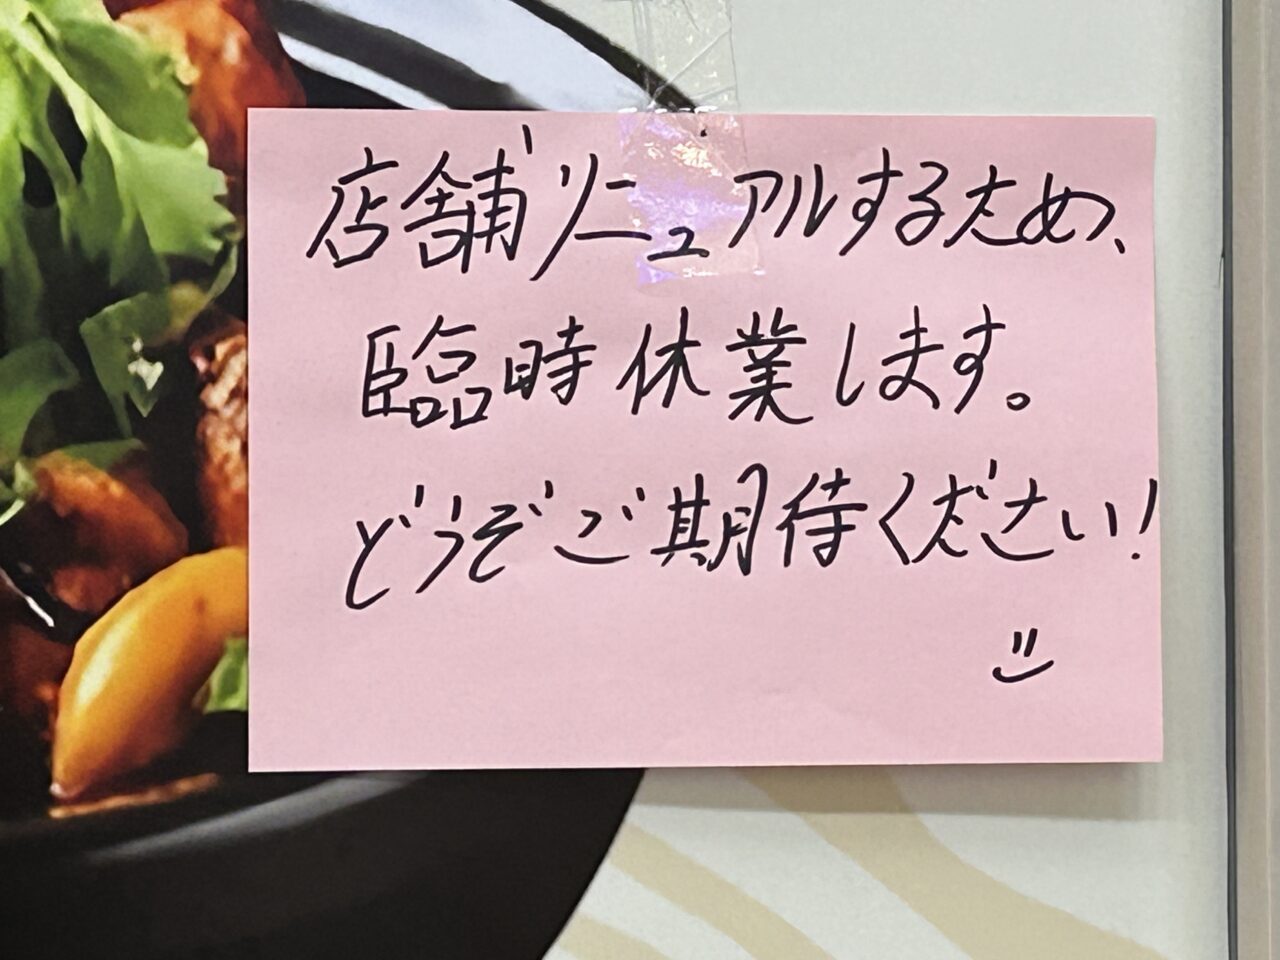 店舗リニュアルするため、
臨時休業します。
どうぞご期待ください!